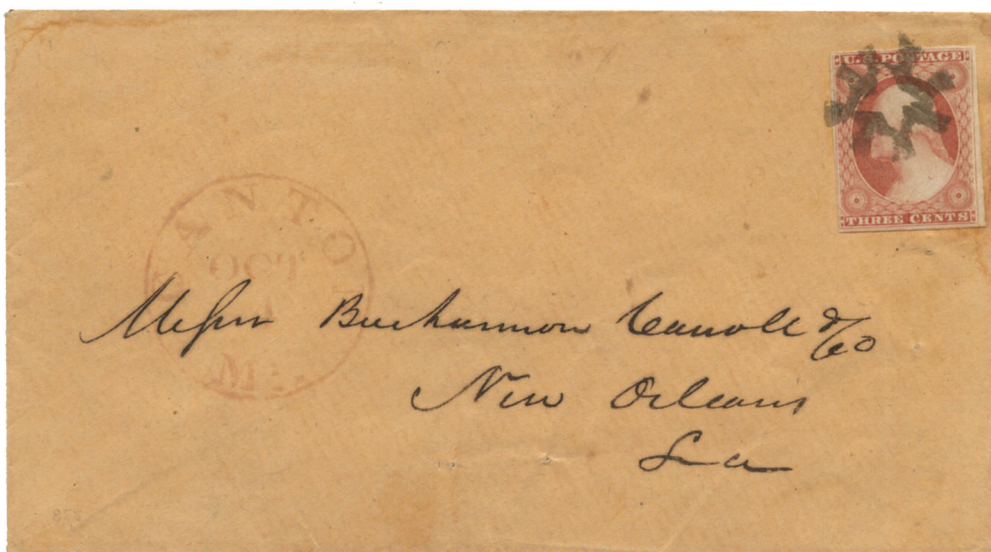 U.S. POSTAGE
THREE CENTS
CANTON
OCT
Mi.
Messrs Buchannon Carroll & Co
New Orleans
La